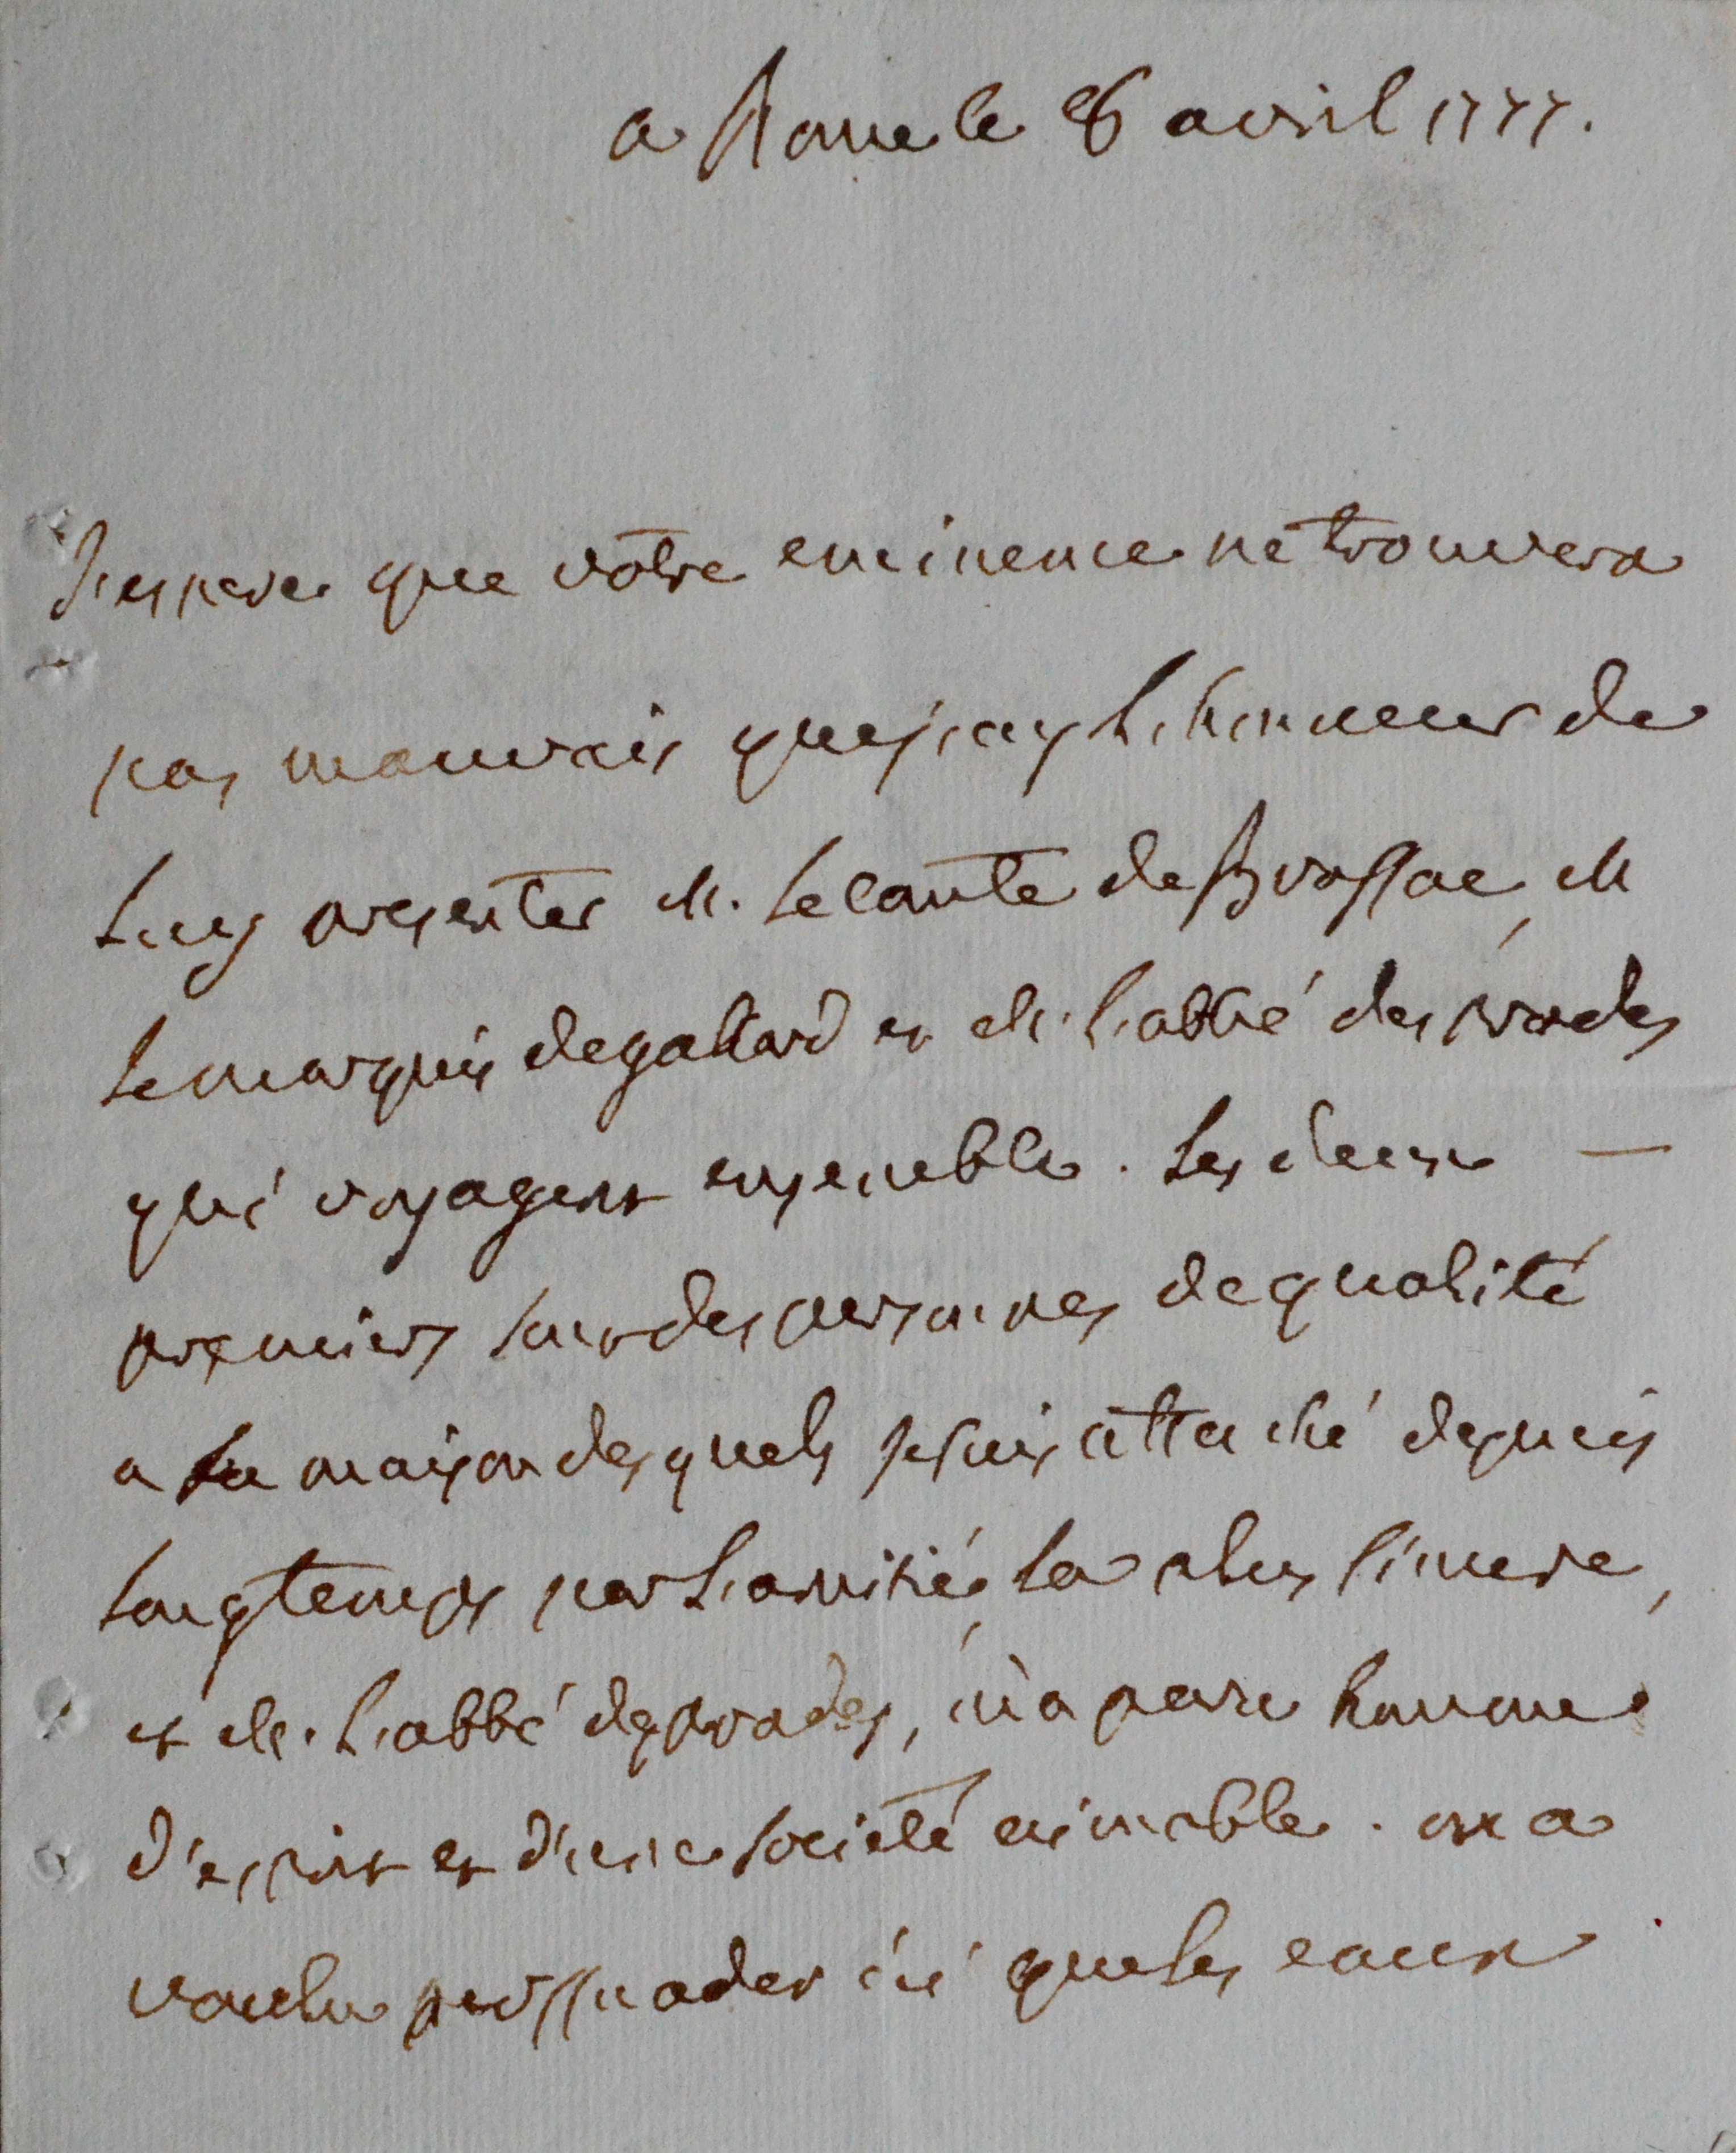 a Rome le 26 avril 1777.
J'espere que votre eminence ne trouvera
pas mauvais que j'ay l'honneur de
luy presenter M. le comte de Brassac, M
le marquis de galard et M. l'abbé des prades
qui voyagent ensemble. les deux —
premiers sont des personnes de qualité
a la maison desquels je suis attaché depuis
longtemps par l'amitié, la plus sincere,
et M. l'abbé desprades, m'a paru homme
d'esprit et d'une societé aimable. on a
voulu perssuader ici que les eaux